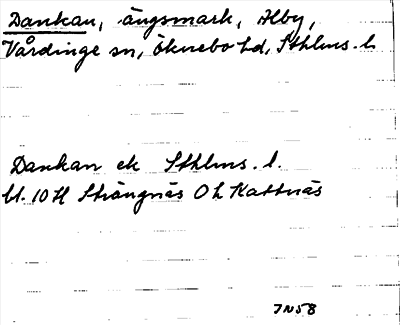 Dankan, ängsmark, Alby,
Vårdinge sn, Öknebo hd, Sthlms. l.
Dankan ek Sthlms. l.
bl. 10 H Strängnäs O L Kattnäs
JN58